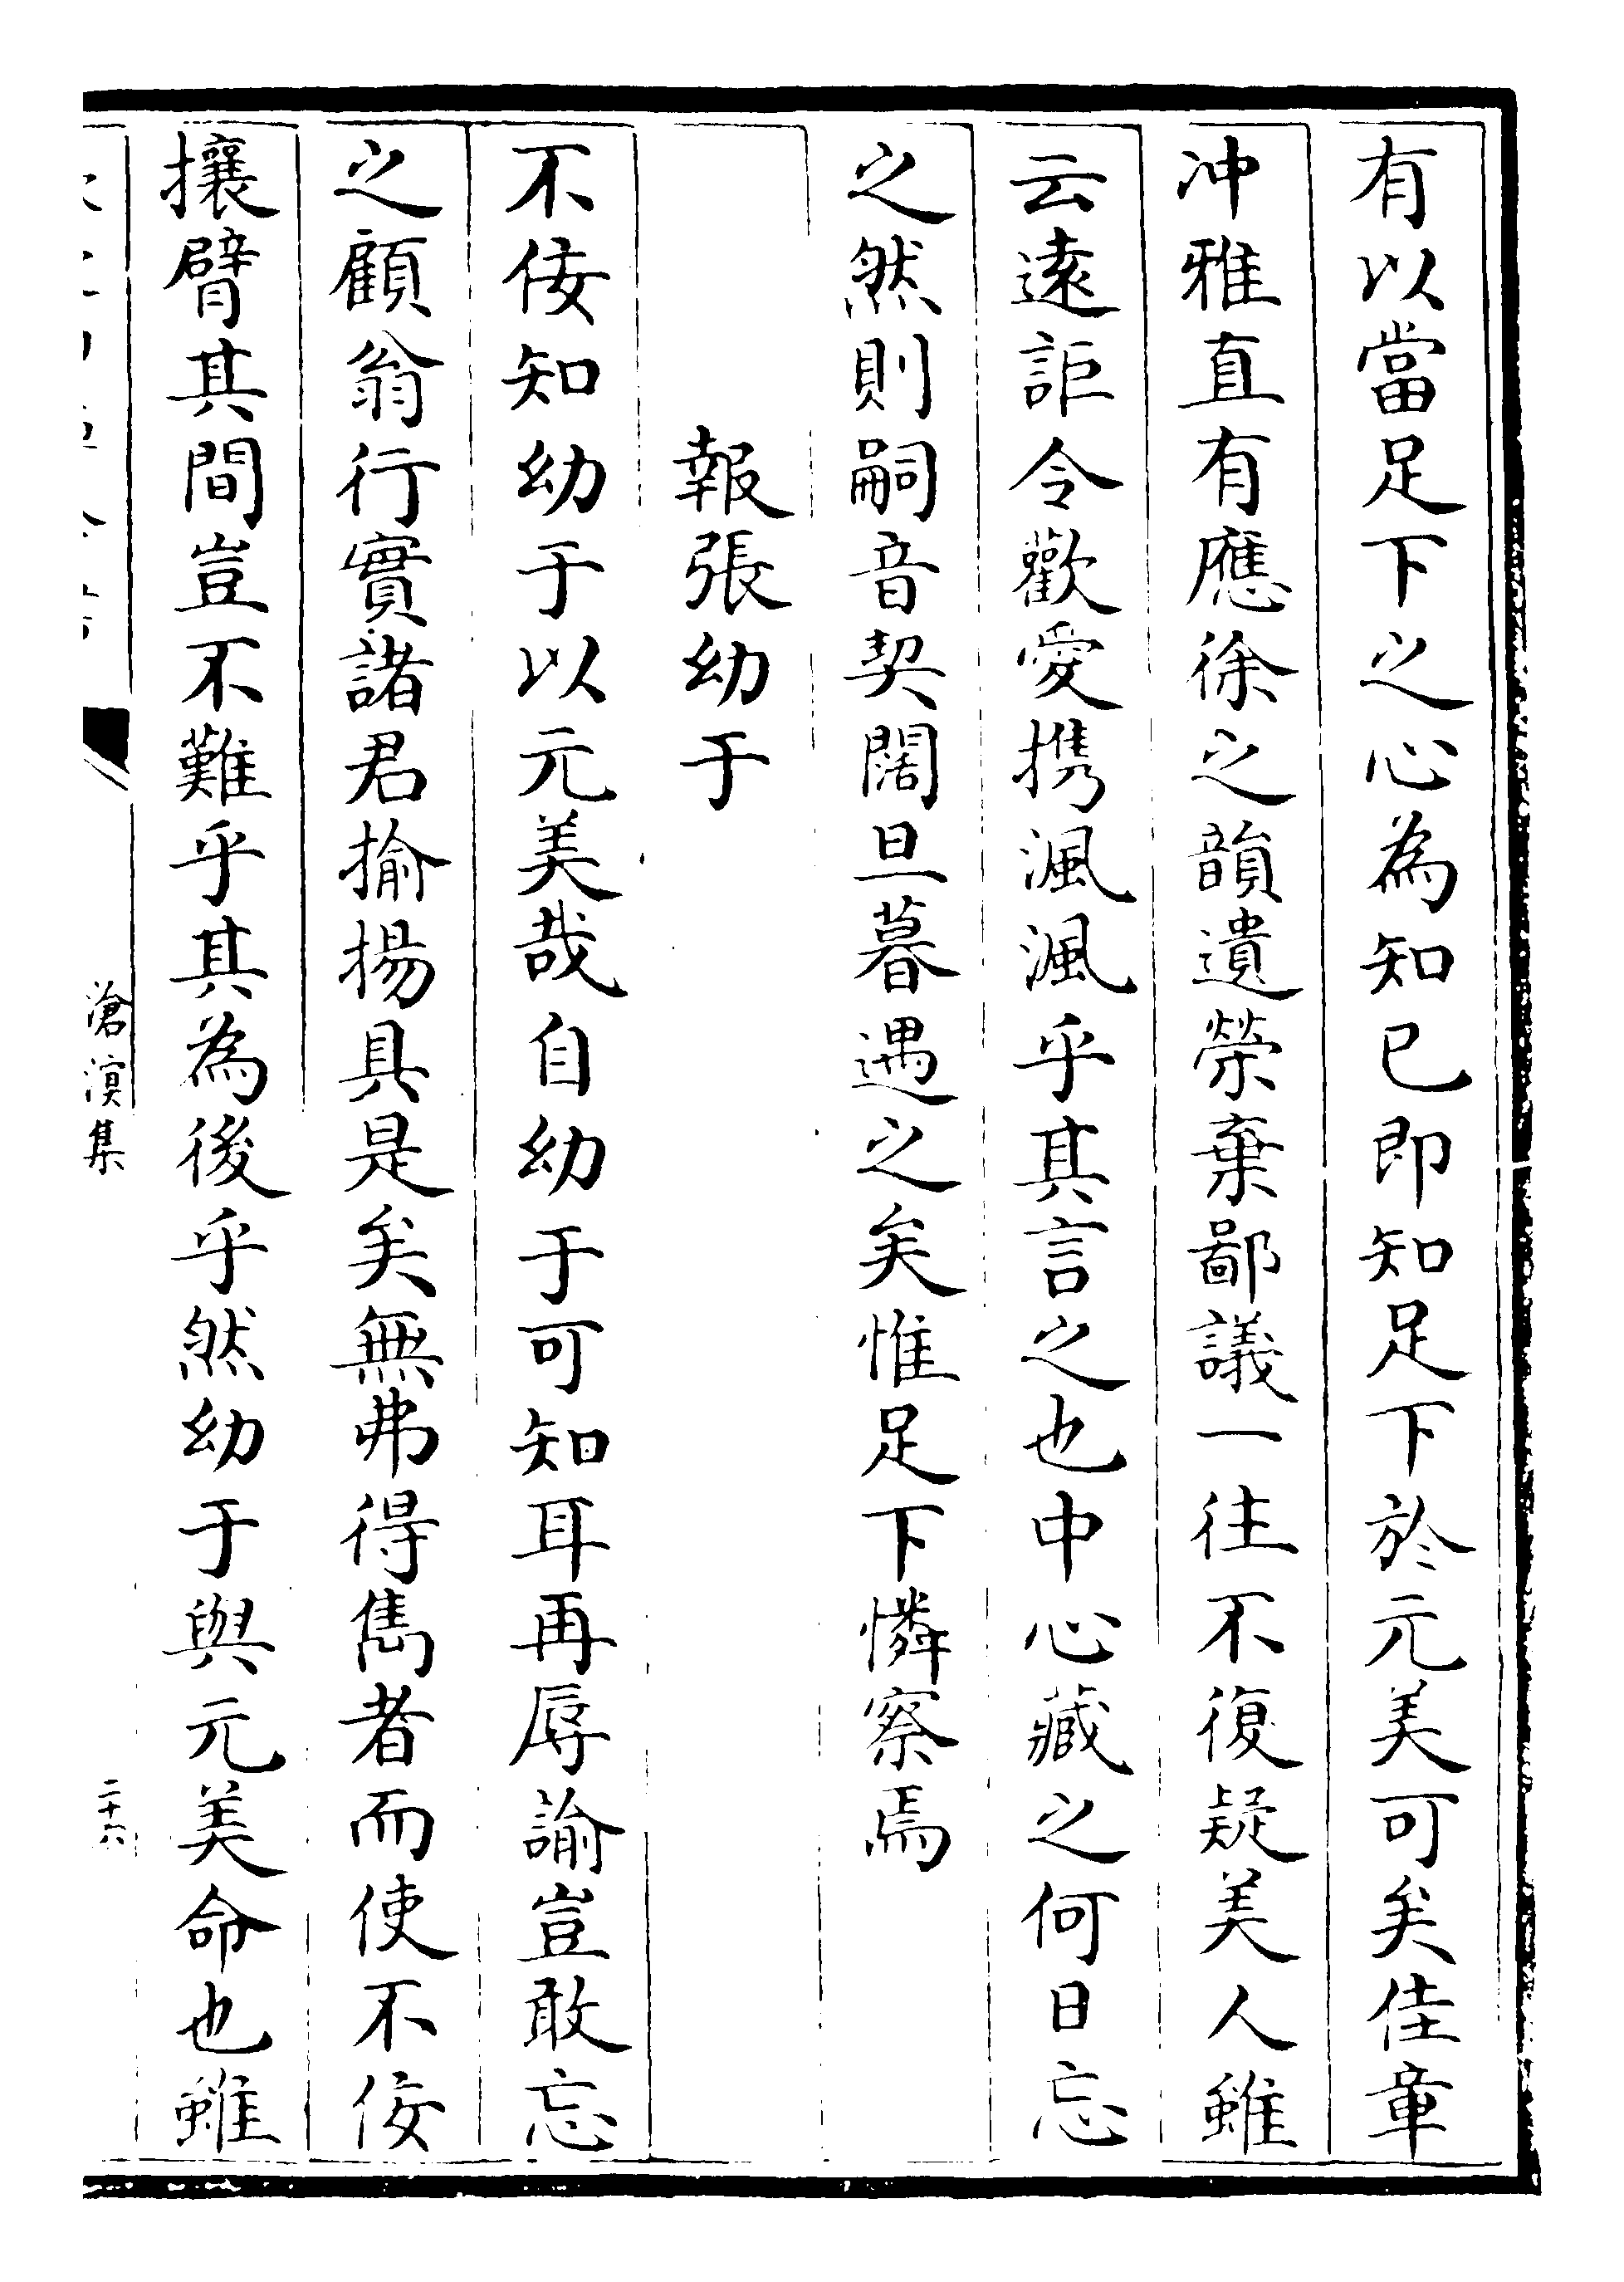 有以當足下之心為知已即知足下於元美可矣佳章
冲雅直有應徐之韻遺榮棄鄙議一往不復疑美人雖
云遠詎令歡愛携渢渢乎其言之也中心藏之何日忘
之然則嗣音契闊旦暮遇之矣惟足下憐察焉
報張幼于
不佞知幼于以元美哉自幼于可知耳再辱諭豈敢忘
之顧翁行實諸君揄揚具是矣無弗得雋者而使不佞
攘臂其間豈不難乎其為後乎然幼于與元美命也雖
滄溟集
二十六